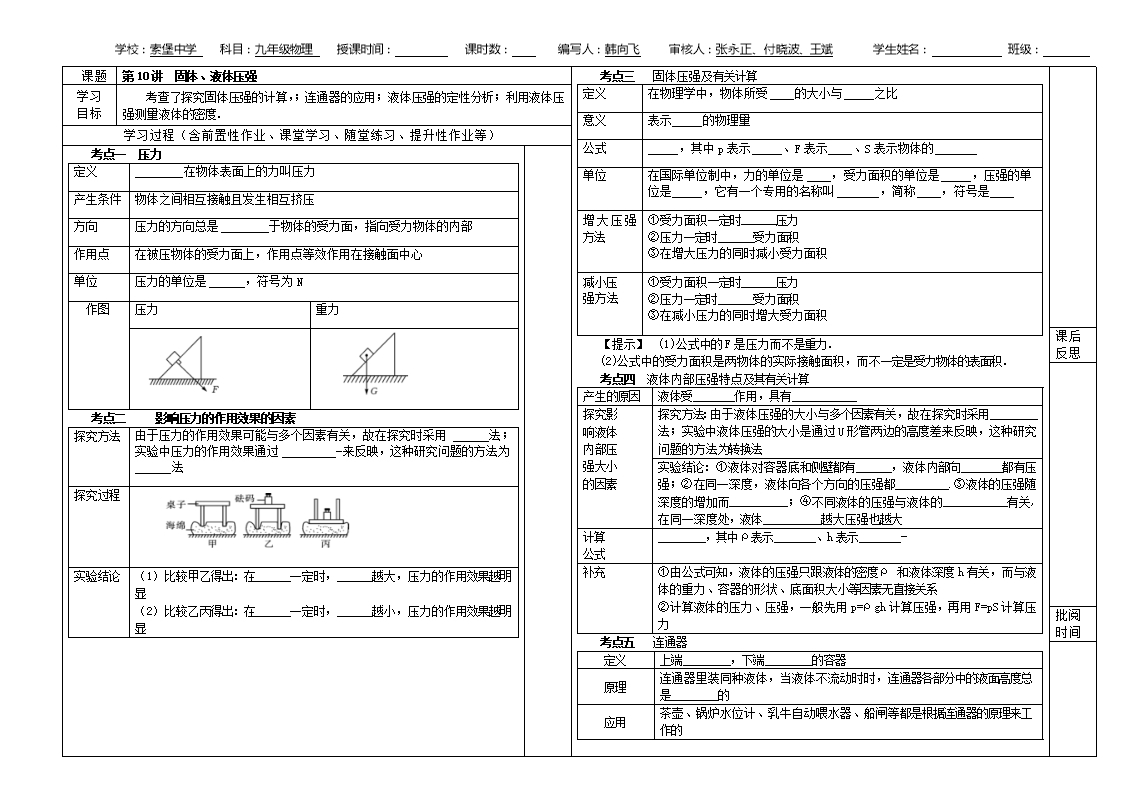 学校：索堡中学 科目：九年级物理 授课时间：________ 课时数：____ 编写人：韩向飞 审核人：张永正、付晓波、王斌 学生姓名：________ 班级：______
课题 第10讲 固体、液体压强
学习目标 考查了探究固体压强的计算，；连通器的应用；液体压强的定性分析；利用液体压
强测量液体的密度．
学习过程（含前置性作业、课堂学习、随堂练习、提升性作业等）
考点一 压力
定义 ________在物体表面上的力叫压力
产生条件 物体之间相互接触且发生相互挤压
方向 压力的方向总是________于物体的受力面，指向受力物体的内部
作用点 在被压物体的受力面上，作用点等效作用在接触面中心
单位 压力的单位是______，符号为N
作图 压力 重力
F G
考点二 影响压力的作用效果的因素
探究方法 由于压力的作用效果可能与多个因素有关，故在探究时采用 ______法；
实验中压力的作用效果通过 _________-来反映，这种研究问题的方法为
______法
探究过程
桌子 砝码
海绵
甲 乙 丙
实验结论 （1）比较甲乙得出：在______一定时，______越大，压力的作用效果越明
显
（2）比较乙丙得出：在______一定时，______越小，压力的作用效果越明
显
考点三 固体压强及有关计算
定义 在物理学中，物体所受____的大小与_____之比
意义 表示_____的物理量
公式 _____，其中p表示_____、F表示____、S表示物体的_______
单位 在国际单位制中，力的单位是____，受力面积的单位是_____，压强的单
位是_____，它有一个专用的名称叫_______，简称____，符号是____
增大压强
方法
①受力面积一定时______压力
②压力一定时______受力面积
③在增大压力的同时减小受力面积
减小压
强方法
①受力面积一定时______压力
②压力一定时______受力面积
③在减小压力的同时增大受力面积
【提示】 (1)公式中的F是压力而不是重力．
(2)公式中的受力面积是两物体的实际接触面积，而不一定是受力物体的表面积．
考点四 液体内部压强特点及其有关计算
产生的原因 液体受_______作用，具有___________
探究影
响液体
内部压
强大小
的因素
探究方法：由于液体压强的大小与多个因素有关，故在探究时采用________
法；实验中液体压强的大小是通过U形管两边的高度差来反映，这种研究
问题的方法为转换法
实验结论：①液体对容器底和侧壁都有______，液体内部向_______都有压
强；②在同一深度，液体向各个方向的压强都_________．③液体的压强随
深度的增加而__________；④不同液体的压强与液体的___________有关，
在同一深度处，液体__________越大压强也越大
计算
公式
________，其中ρ表示_______、h表示_______-
补充 ①由公式可知，液体的压强只跟液体的密度ρ 和液体深度h有关，而与液
体的重力、容器的形状、底面积大小等因素无直接关系
②计算液体的压力、压强，一般先用p=ρgh计算压强，再用F=pS计算压
力
考点五 连通器
定义 上端________，下端________的容器
原理 连通器里装同种液体，当液体不流动时时，连通器各部分中的液面高度总
是________的
应用 茶壶、锅炉水位计、乳牛自动喂水器、船闸等都是根据连通器的原理来工
作的
课后
反思
批阅
时间